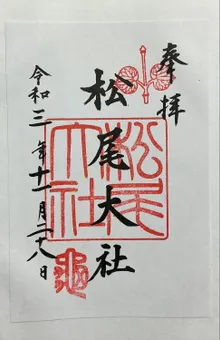 奉拝
松尾大社
令和三年十一月二十八日
松尾大社